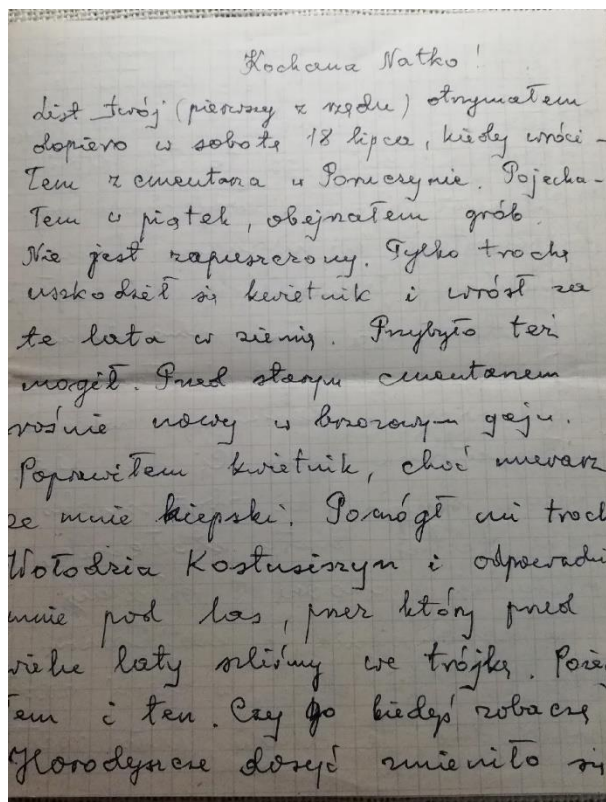 Kochana Natko!
List twój (pierwszy z rzędu) otrzymałem
dopiero w sobotę 18 lipca, kiedy wróci-
łem z cmentarza w Poruczynie. Pojecha-
łem w piątek, obejrzałem grób.
Nie jest zapuszczony. Tylko trochę
uszkodził się kwietnik i wrósł za
te lata w ziemię. Przybyło też
mogił. Przed starym cmentarzem
rośnie nowy w brzozowym gaju.
Poprawiłem kwietnik, choć murarz
ze mnie kiepski. Pomógł mi troch
Wołodzia Kostusiszyn i odprowadzi
mnie pod las, przez który przed
wielu laty szliśmy we trójkę. Poże
łem i ten. Czy go kiedyś zobaczę
Horodyszcze dosyć zmieniło się